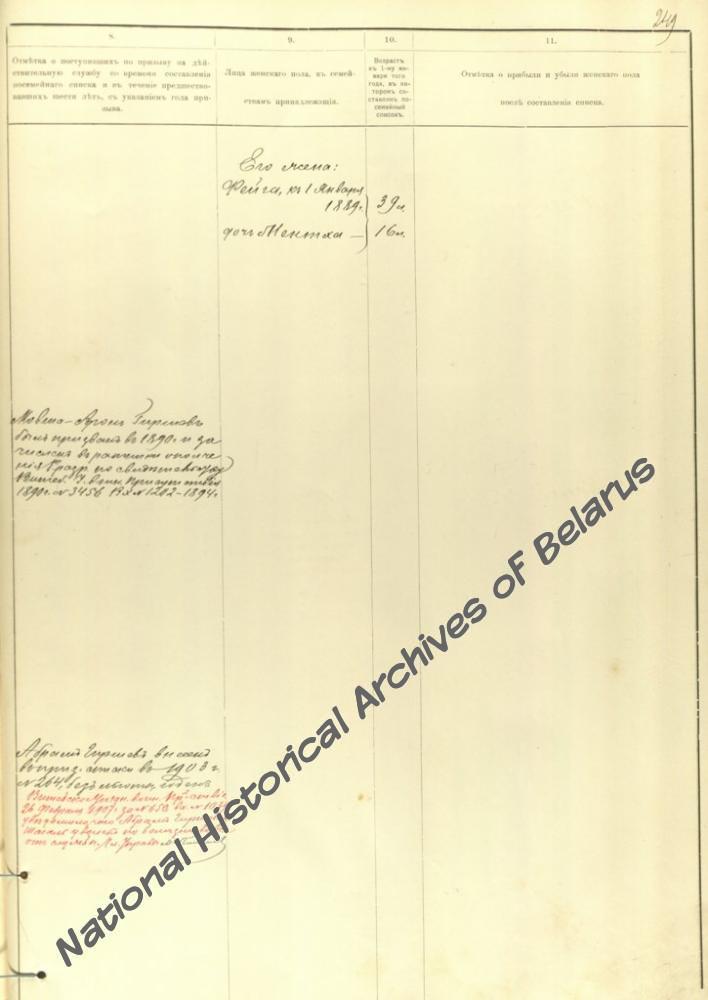 249
8.
9.
10.
11.
Отмѣтка о поступившихъ по призыву на дѣй-
ствительную службу во времени составленія
посемейнаго списка и въ теченіе предшество-
вавшихъ шести лѣтъ, съ указаніемъ года при-
зыва.
Лица женскаго пола, къ семей-
ствамъ принадлежащія.
Возрастъ
къ 1-му ян-
варя того
года, въ ко-
торомъ со-
ставленъ по-
семейный
списокъ.
Отмѣтка о прибыли и убыли женскаго пола
послѣ составленія списка.
Его жена:
Фейга, къ 1 Января
1889г. 39 л.
дочь — 16 л.
Мовша-Аронъ Гиршовъ
былъ призванъ въ 1890 г. и за
численъ въ ратники ополче
нія разр. по
Витеб. воин. присут
1890г. № 3456 Вх № 1202-1894г.
Абрамъ Гиршевъ внесенъ
въ приз. списки въ 1903 г.
№ 264,
Витебское воин.
26 Февраля 1907г. за № 658 вх №
Абрамъ
отъ службы.
National Historical Archives of Belarus